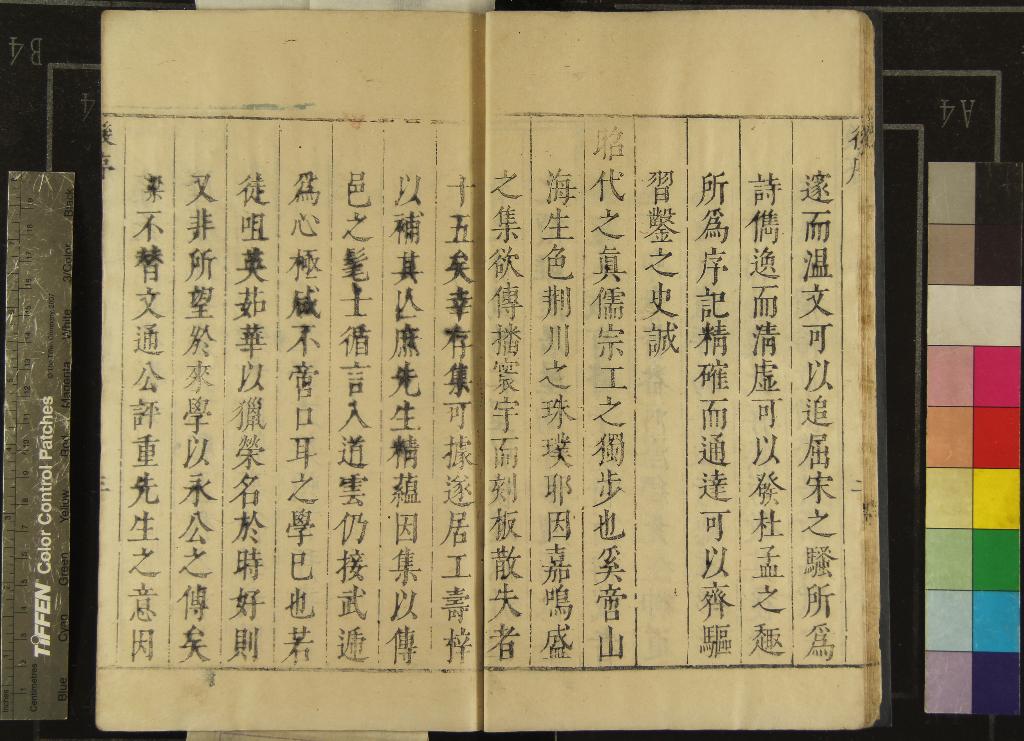 後序
邃而温文可以追屈宋之騷所爲
詩儁逸而清虛可以發杜孟之趣
所爲序記精確而通達可以齊驅
習鑿之史誠
昭代之眞儒宗工之獨步也奚啻山
海生色荆川之珠璞耶因嘉鳴盛
之集欲傳播寰宇而刻板散失者
十五矣幸存集可據遂居工壽梓
以補其亾庶先生精蘊因集以傳
邑之髦士循言入道雲仍接武遞
爲心極咸不啻口耳之學已也若
徒咀英茹華以獵榮名於時好則
又非所望於來學以永公之傳矣
梁不替文通公評重先生之意因
後序
三
B4
4
A4
TIFFEN Color Control Patches
© The Tiffen Company, 2007
Inches
Centimetres
Blue
Cyan
Green
Yellow
Red
Magenta
White
3/Color
Black